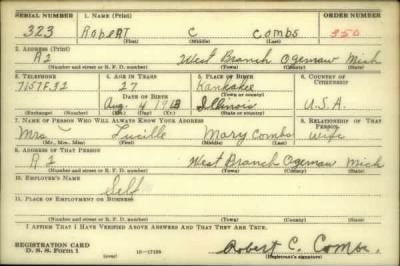 SERIAL NUMBER 1. NAME (Print) ORDER NUMBER
323 Robert C Combs 350
(First) (Middle) (Last)
2. ADDRESS (Print)
R2 West Branch Ogemaw Mich
(Number and street or R. F. D. number) (Town) (County) (State)
3. TELEPHONE 4. AGE IN YEARS 5. PLACE OF BIRTH 6. COUNTRY OF CITIZENSHIP
7157F32 27 Kankakee
DATE OF BIRTH (Town or county)
Aug 4 1913 Illinois U.S.A.
(Exchange) (Number) (Mo.) (Day) (Yr.) (State or country)
7. NAME OF PERSON WHO WILL ALWAYS KNOW YOUR ADDRESS 8. RELATIONSHIP OF THAT PERSON
Mrs Lucille Mary Combs Wife
(Mr., Mrs., Miss) (First) (Middle) (Last)
9. ADDRESS OF THAT PERSON
R2 West Branch Ogemaw Mich
(Number and street or R. F. D. number) (Town) (County) (State)
10. EMPLOYER'S NAME
Self
11. PLACE OF EMPLOYMENT OR BUSINESS
(Number and street or R. F. D. number) (Town) (County) (State)
I AFFIRM THAT I HAVE VERIFIED ABOVE ANSWERS AND THAT THEY ARE TRUE.
REGISTRATION CARD
D. S. S. Form 1 16-17105 Robert C. Combs
(Registrant's signature)